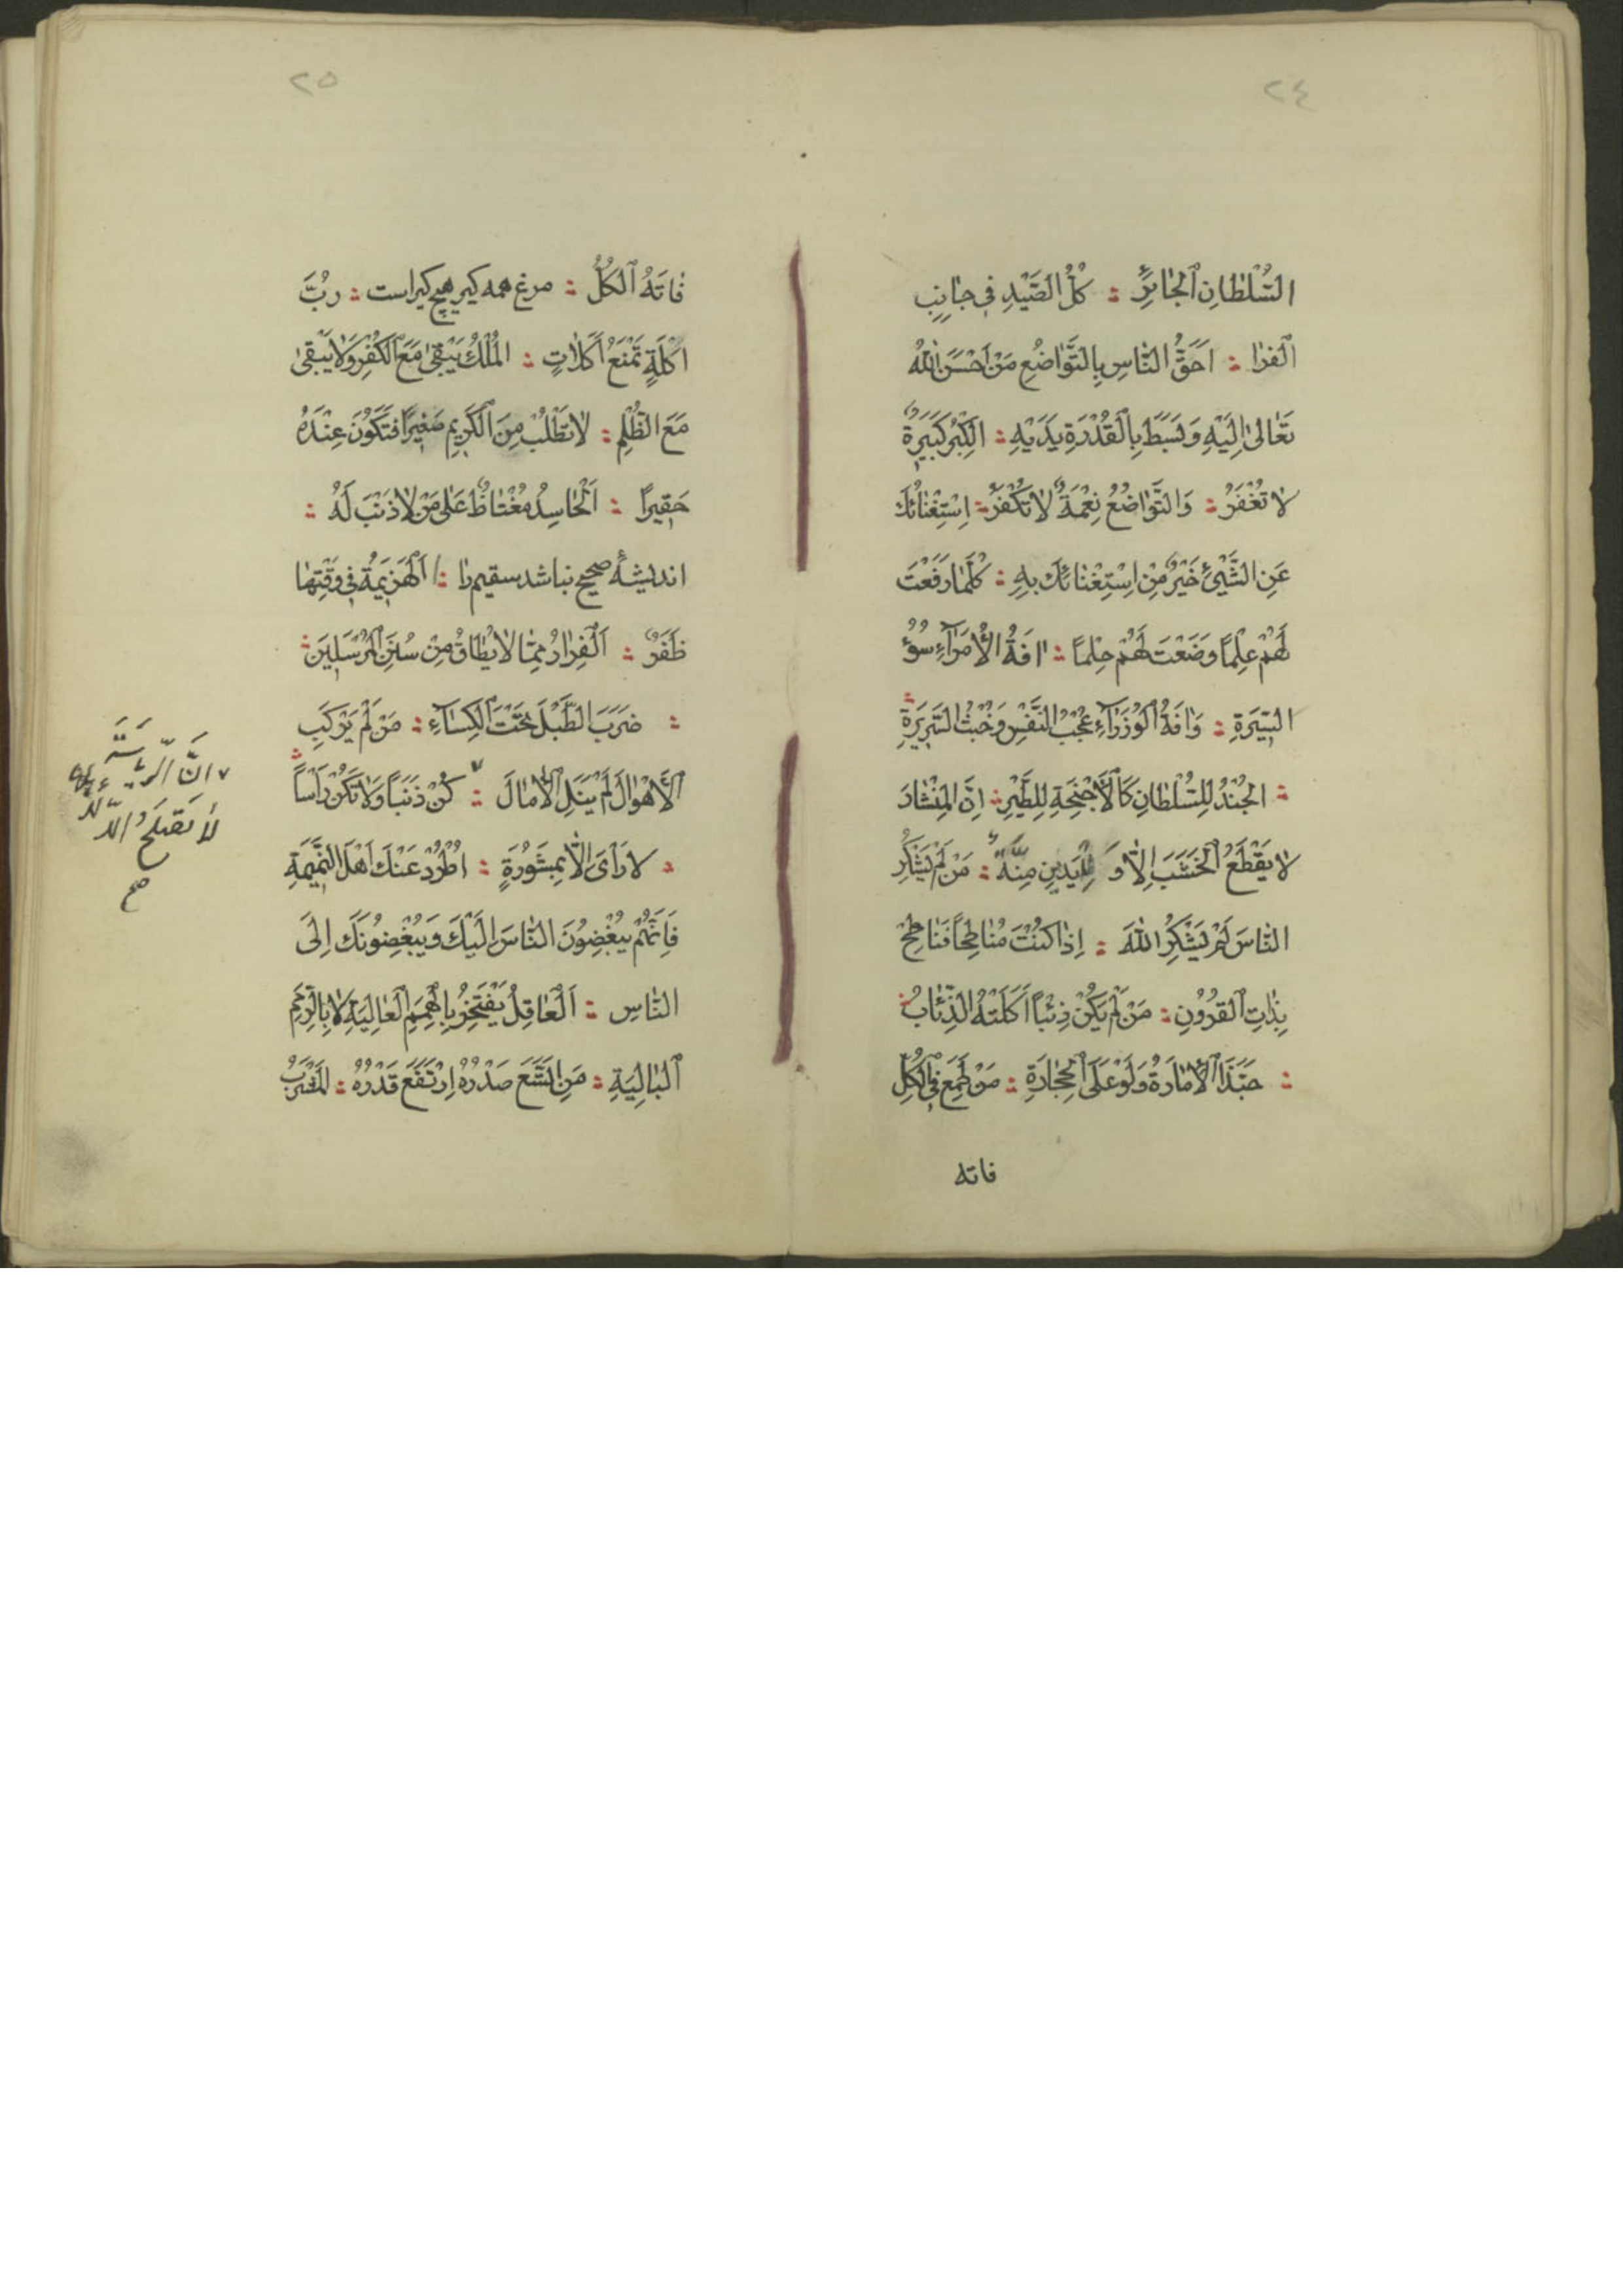 ٢٤
السُّلْطَانِ الْجَائِرِ : كُلُّ الصَّيْدِ فِي جَانِبِ
الْفَرَا : اَحَقُّ النَّاسِ بِالتَّوَاضُعِ مَنْ اَحْسَنَ اللهُ
تَعَالٰى اِلَيْهِ وَبَسَطَ بِالْقُدْرَةِ يَدَيْهِ : الْكِبْرُ كَبِيرَةٌ
لَا تُغْفَرُ : وَالتَّوَاضُعُ نِعْمَةٌ لَا تُكْفَرُ : اِسْتِغْنَائُكَ
عَنِ الشَّيْئِ خَيْرٌ مِنْ اِسْتِغْنَائِكَ بِهِ : كُلَّمَا رَفَعْتَ
لَهُمْ عِلْمًا وَضَعْتَ لَهُمْ حِلْمًا : اٰفَةُ الْأُمَرَآءِ سُوْءُ
السِّيرَةِ : وَاٰفَةُ الْوُزَرَآءِ عُجْبُ النَّفْسِ وَخُبْثُ السَّرِيرَةِ
: الْجُنْدُ لِلسُّلْطَانِ كَالْأَجْنِحَةِ لِلطَّيْرِ : اِنَّ الْمِنْشَارَ
لَا يَقْطَعُ الْخَشَبَ اِلَّا وَ لِلْيَدَيْنِ مِنَّةٌ : مَنْ لَمْ يَشْكُرِ
النَّاسَ لَمْ يَشْكُرِ اللهَ : اِذَا كُنْتَ مُنَاطِحًا فَنَاطِحْ
بِذَاتِ الْقُرُوْنِ : مَنْ لَمْ يَكُنْ ذِئْبًا اَكَلَتْهُ الذِّئَابُ :
: حَبَّذَا الْأِمَارَةُ وَلَوْ عَلَى الْحِجَارَةِ : مَنْ طَمِعَ فِي الْكُلِّ
فاته
٢٥
فَاتَهُ الْكُلُّ : مرغ همه كير هيچ كيراست : رُبَّ
اَكْلَةٍ تَمْنَعُ اَكَلَاتٍ : الْمُلْكُ يَبْقٰى مَعَ الْكُفْرِ وَلَا يَبْقٰى
مَعَ الظُّلْمِ : لَا تَطْلُبْ مِنَ الْكَرِيمِ صَغِيرًا فَتَكُوْنَ عِنْدَهُ
حَقِيرًا : اَلْحَاسِدُ مُغْتَاظٌ عَلٰى مَنْ لَا ذَنْبَ لَهُ :
انديشهٔ صحيح نباشد سقيم را : اَلْهَزِيمَةُ فِي وَقْتِهَا
ظَفَرٌ : اَلْفِرَارُ مِمَّا لَا يُطَاقُ مِنْ سُنَنِ الْمُرْسَلِينَ :
: ضَرَبَ الطَّبْلَ تَحْتَ الْكِسَآءِ : مَنْ لَمْ يَرْكَبِ
الْأَهْوَالَ لَمْ يَنَلِ الْأٰمَالَ : كُنْ ذَنَبًا وَلَا تَكُنْ رَأْسًا :
: لَا رَأْىَ اِلَّا بِمَشْوَرَةٍ : اُطْرُدْ عَنْكَ اَهْلَ النَّمِيمَةِ
فَاِنَّهُمْ يُبْغِضُوْنَ النَّاسَ اِلَيْكَ وَيُبْغِضُوْنَكَ اِلَى
النَّاسِ : اَلْعَاقِلُ يَفْتَخِرُ بِالْهِمَمِ الْعَالِيَةِ لَا بِالرِّمَمِ
الْبَالِيَةِ : مَنِ اتَّسَعَ صَدْرُهُ اِرْتَفَعَ قَدْرُهُ : الْمَشْرَبُ
صح